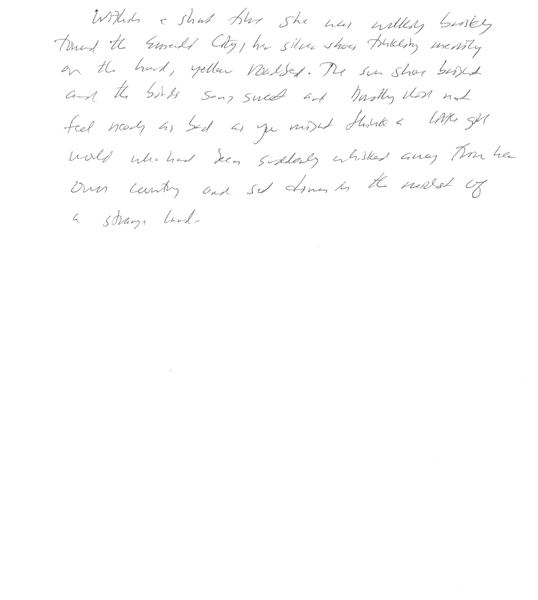 Within a short time she was walking briskly
toward the Emerald City, her silver shoes tinkling merrily
on the hard, yellow roadbed. The sun shone bright
and the birds sang sweet and Dorothy did not
feel nearly as bad as you might think a little girl
would who had been suddenly whisked away from her
own country and set down in the midst of
a strange land.